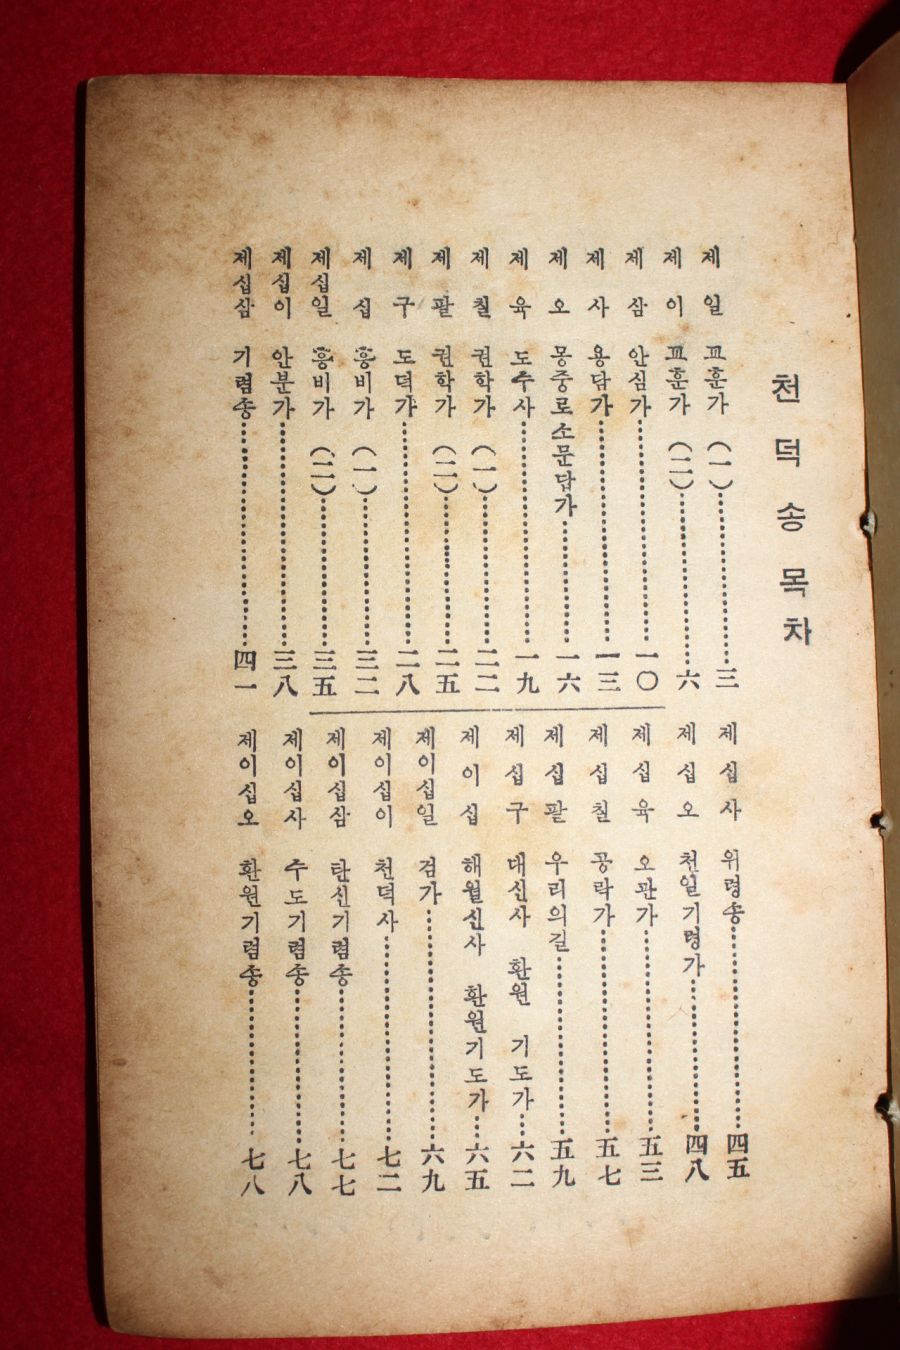 천덕송목차
제 일 교훈가 (一)……三
제 이 교훈가 (二)……六
제 삼 안심가……一〇
제 사 용담가……一三
제 오 몽중로소문답가……一六
제 육 도수사……一九
제 칠 권학가 (一)……二二
제 팔 권학가 (二)……二五
제 구 도덕가……二八
제 십 흥비가 (一)……三二
제십일 흥비가 (二)……三五
제십이 안분가……三八
제십삼 기렴송……四一
제 십 사 위령송……四五
제 십 오 천일기렴가……四八
제 십 육 오관가……五三
제 십 칠 공락가……五七
제 십 팔 우리의길……五九
제 십 구 대신사 환원 기도가……六二
제 이 십 해월신사 환원기도가……六五
제이십일 검가……六九
제이십이 천덕사……七二
제이십삼 탄신기렴송……七七
제이십사 수도기렴송……七八
제이십오 환원기렴송……七八